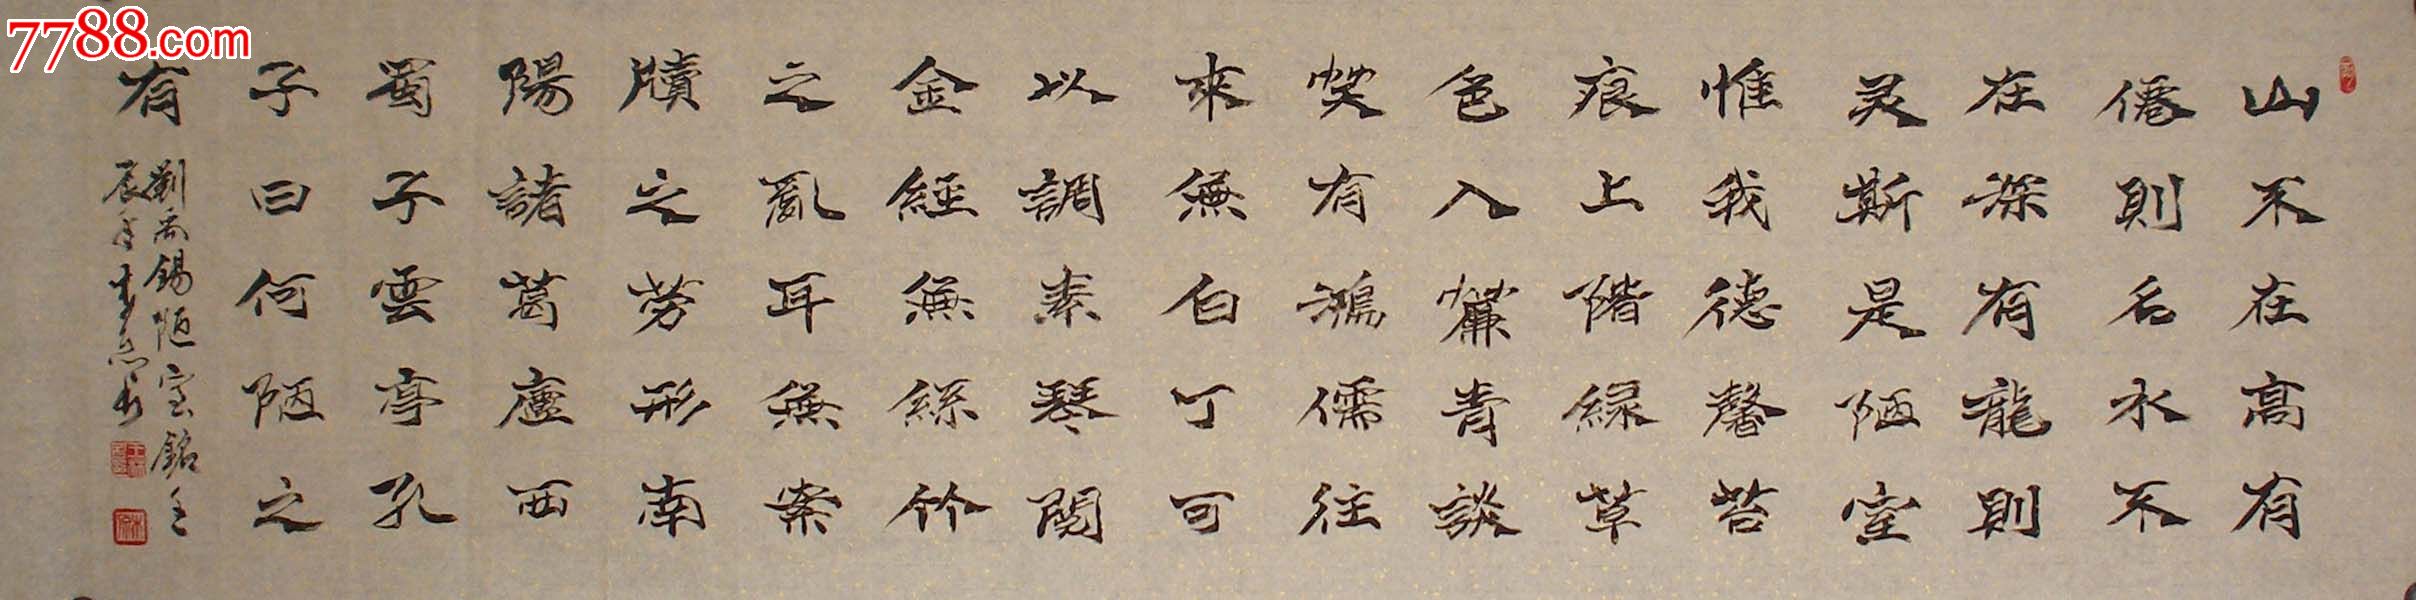 山不在高有
僊則名水不
在深有龍則
灵斯是陋室
惟我德馨苔
痕上階緑草
色入簾青談
笑有鴻儒往
來無白丁可
以調素琴閲
金經無絲竹
之亂耳無案
牘之劳形南
陽諸葛廬西
蜀子雲亭孔
子曰何陋之
有
劉禹錫陋室銘壬
辰年
7788.com